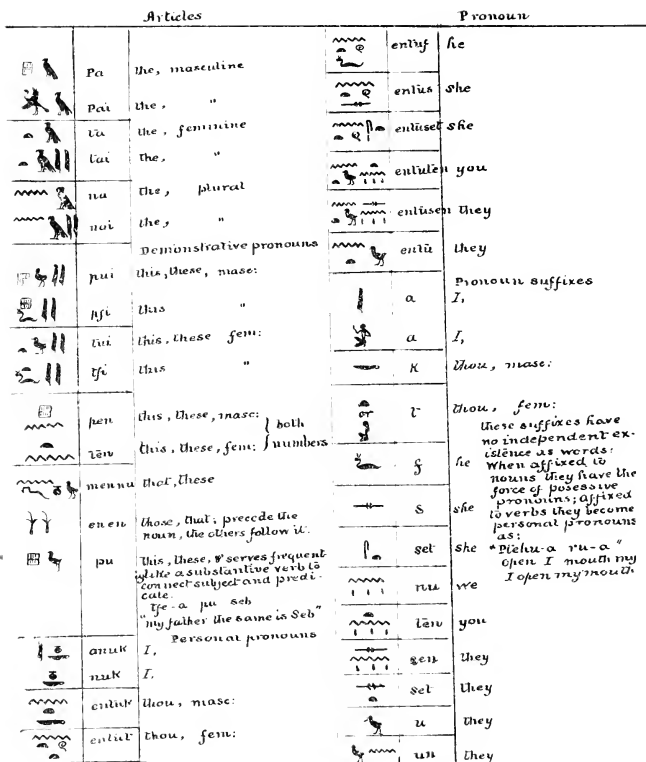 Articles
Pa the, masculine
Pai the, "
ta the, feminine
tai the, "
na the, plural
nai the, "
Demonstrative pronouns
pui this, these, masc:
pfi this "
tui this, these fem:
tfi this "
pen this, these, masc: } both
ten this, these, fem: } numbers
mennu that, these
enen those, that; precede the
noun, the others follow it.
pu this, these, & serves frequent
ly like a substantive verb to
connect subject and predi-
cate.
tfe-a pu seb
"my father the same is Seb"
Personal pronouns
anuk I,
nuk I,
entuk thou, masc:
entut thou, fem:
Pronoun
entuf he
entus she
entuset she
entuten you
entusen they
entu they
Pronoun suffixes
a I,
a I,
K thou, masc:
or
t thou, fem:
these suffixes have
no independent ex-
istence as words:
When affixed to
nouns they have the
force of posessive
pronouns; affixed
to verbs they become
personal pronouns
as:
"Ptehu-a ru-a"
open I mouth my
I open my mouth
f he
s she
set she
nu we
ten you
sen they
set they
u they
un they